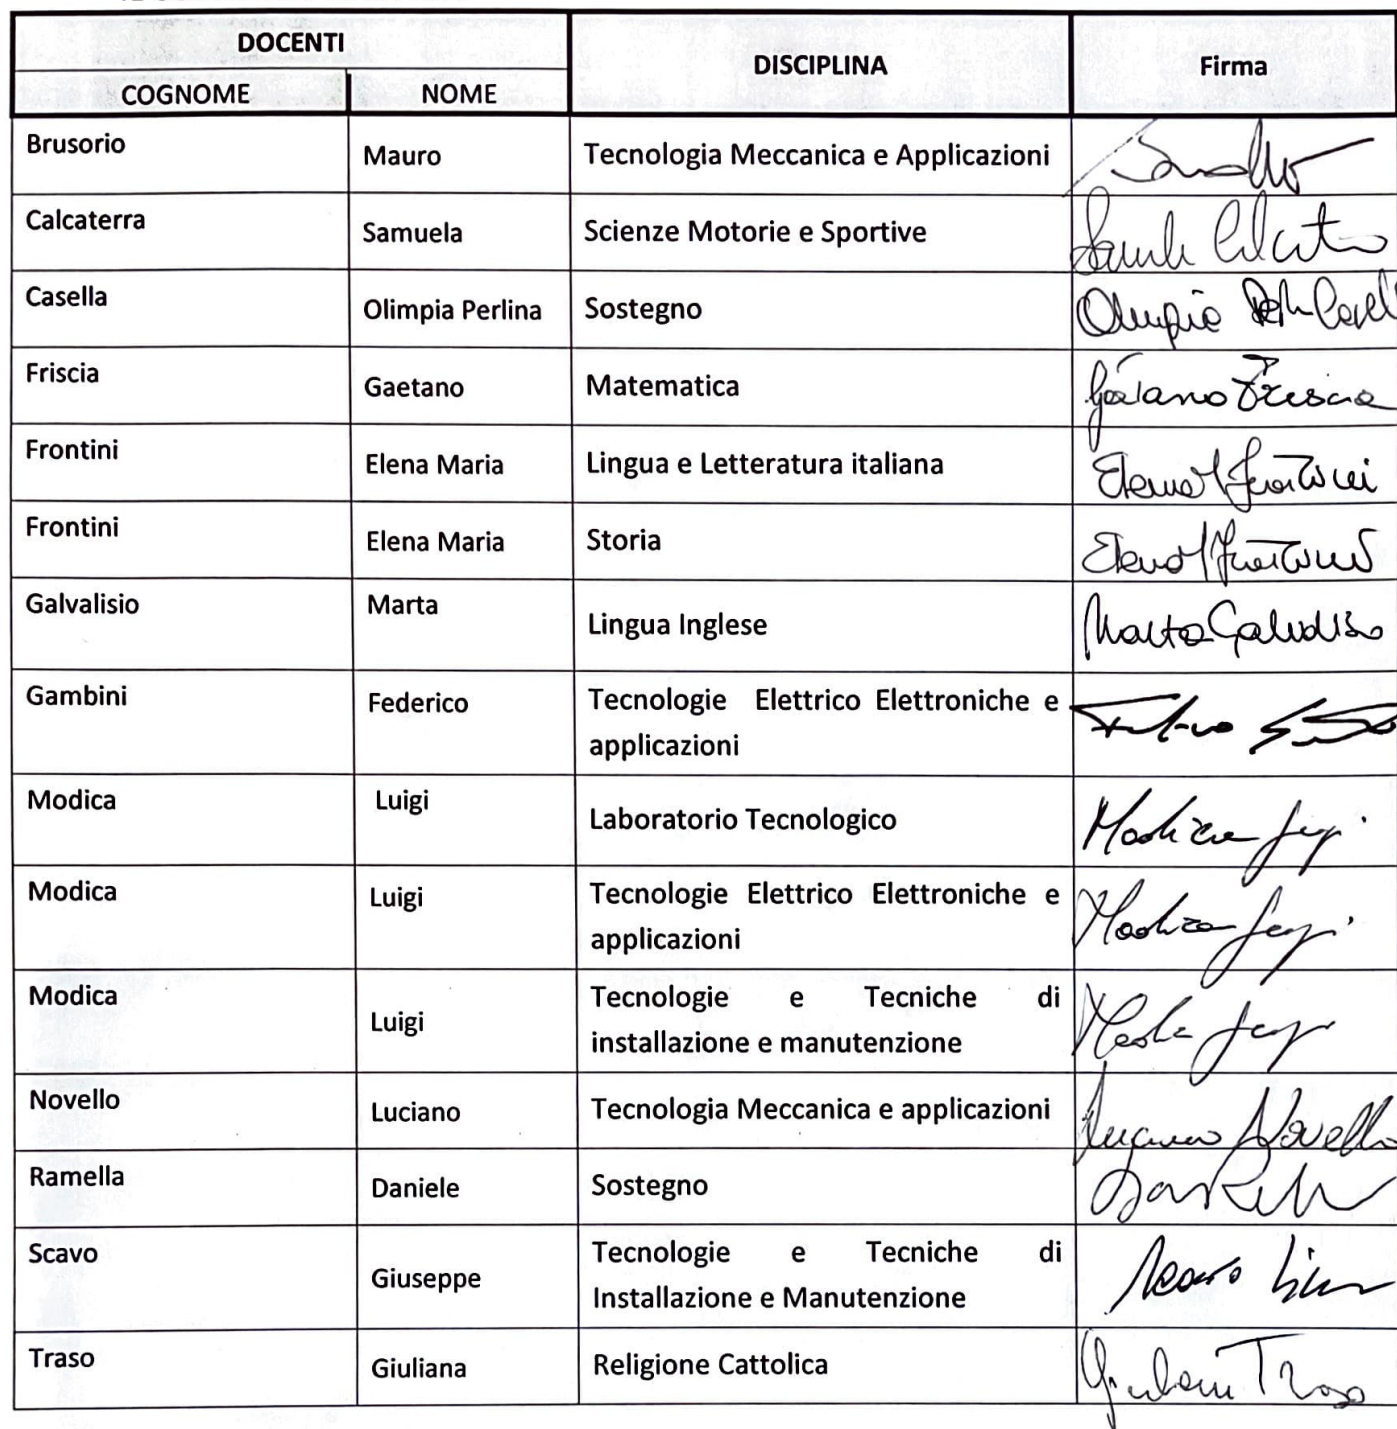 DOCENTI
DISCIPLINA
Firma
COGNOME
NOME
Brusorio
Mauro
Tecnologia Meccanica e Applicazioni
Calcaterra
Samuela
Scienze Motorie e Sportive
Casella
Olimpia Perlina
Sostegno
Olimpia
Friscia
Gaetano
Matematica
Gaetano Friscia
Frontini
Elena Maria
Lingua e Letteratura italiana
Elena M Frontini
Frontini
Elena Maria
Storia
Elena M Frontini
Galvalisio
Marta
Lingua Inglese
Marta Galvalisio
Gambini
Federico
Tecnologie Elettrico Elettroniche e
applicazioni
Modica
Luigi
Laboratorio Tecnologico
Modica Luigi
Modica
Luigi
Tecnologie Elettrico Elettroniche e
applicazioni
Modica Luigi
Modica
Luigi
Tecnologie e Tecniche di
installazione e manutenzione
Novello
Luciano
Tecnologia Meccanica e applicazioni
Luciano Novello
Ramella
Daniele
Sostegno
Scavo
Giuseppe
Tecnologie e Tecniche di
Installazione e Manutenzione
Traso
Giuliana
Religione Cattolica
Giuliana Traso